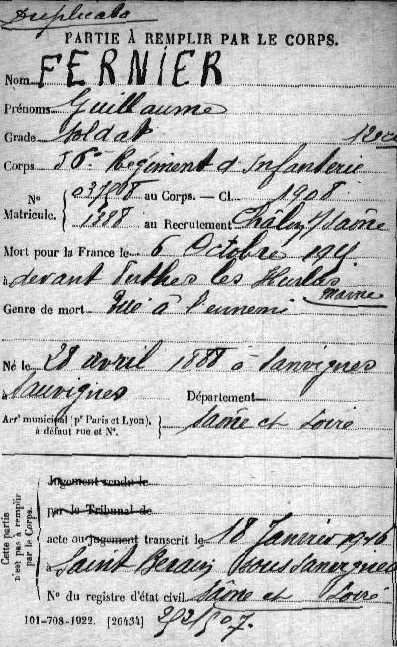 Duplicata
PARTIE À REMPLIR PAR LE CORPS.
Nom FERNIER
Prénoms Guillaume
Grade Soldat
Corps 56me Régiment d'Infanterie
N° Matricule. au Corps. — Cl. 1908
1388 au Recrutement Châlon s/Saône
Mort pour la France le 6 Octobre
à devant Perthes les Hurlus
Marne
Genre de mort Tué à l'ennemi
Né le 28 avril 1888 à Sanvignes
à Sanvignes Département
Arrt municipal (pr Paris et Lyon), à défaut rue et N°. Saône et Loire
Cette partie n'est pas à remplir par le Corps.
Jugement rendu le
par le Tribunal de
acte ou jugement transcrit le 18 Janvier 1916
à Saint Berain sous Sanvignes
N° du registre d'état civil Saône et Loire
101-708-1922. [26434]